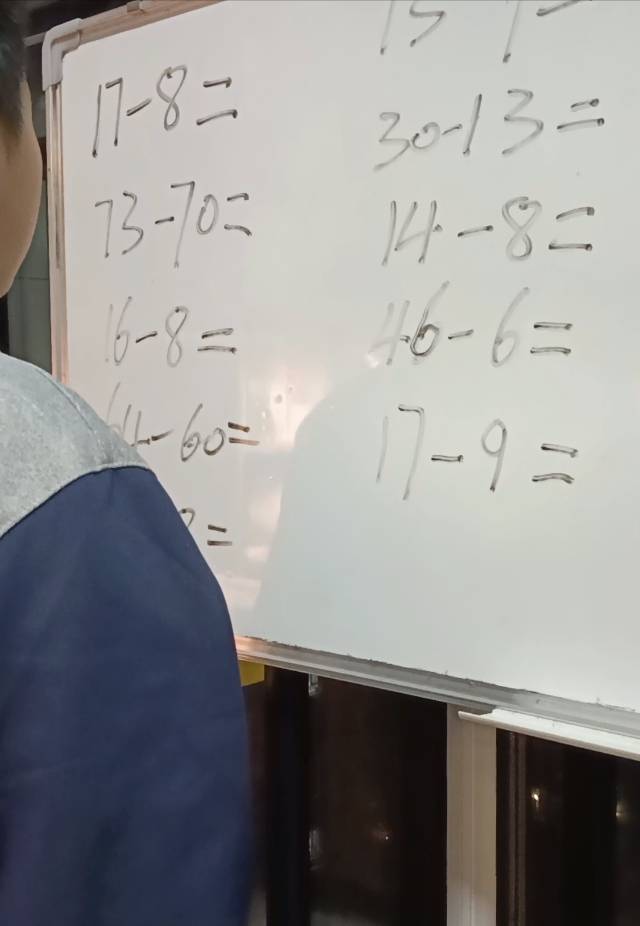 17-8=
73-70=
16-8=
64-60=
=
30-13=
14-8=
46-6=
17-9=